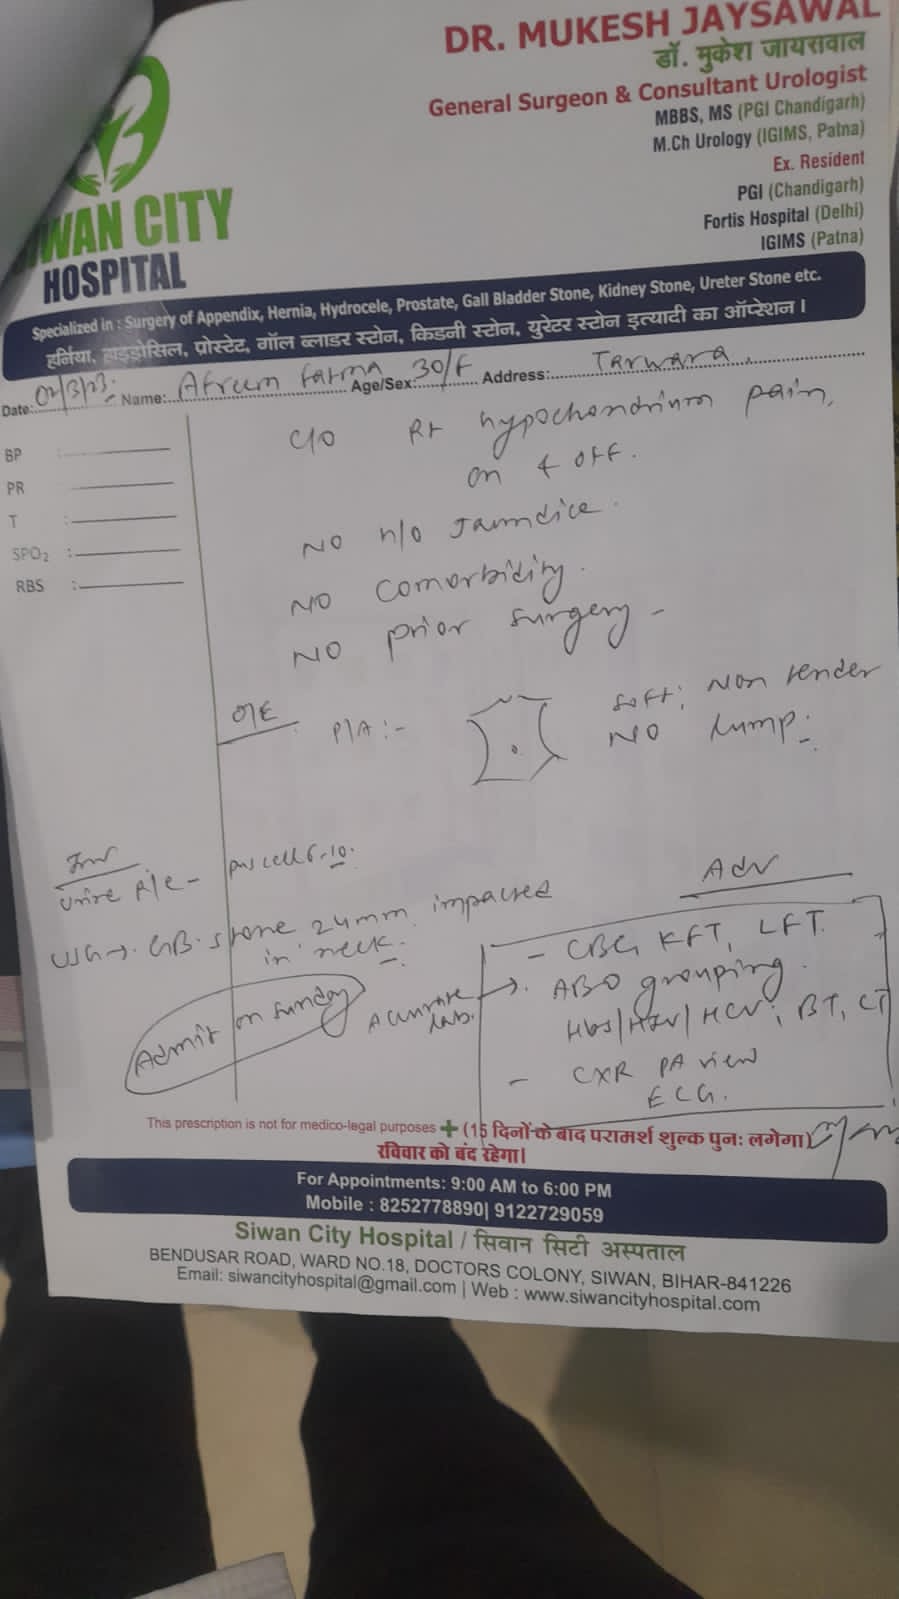 DR. MUKESH JAYSAWAL
डॉ. मुकेश जायसवाल
General Surgeon & Consultant Urologist
MBBS, MS (PGI Chandigarh)
M.Ch Urology (IGIMS, Patna)
Ex. Resident
PGI (Chandigarh)
Fortis Hospital (Delhi)
IGIMS (Patna)
IWAN CITY
HOSPITAL
Specialized in : Surgery of Appendix, Hernia, Hydrocele, Prostate, Gall Bladder Stone, Kidney Stone, Ureter Stone etc.
हर्निया, हाइड्रोसिल, प्रोस्टेट, गॉल ब्लाडर स्टोन, किडनी स्टोन, युरेटर स्टोन इत्यादी का ऑप्रेशन।
Date: 02/3/23 Name: Afreem Fatma Age/Sex: 30/F Address: Tarwara
C/O Rt hypochondrium pain,
on & off.
BP :
PR
T :
SPO2 :
RBS :
NO h/o Jaundice.
NO comorbidity.
NO prior surgery -
O/E
P/A :- soft; Non tender
NO lump.
Inv
Urine R/e - pus cell 6-10.
USG → GB. stone 24mm impacted
in neck.
Admit on Sunday
Accurate
lab.
Adv
- CBC, KFT, LFT.
ABO grouping.
HBS/HIV/HCV; BT, CT
- CXR PA view
ECG.
This prescription is not for medico-legal purposes + (15 दिनों के बाद परामर्श शुल्क पुनः लगेगा)
रविवार को बंद रहेगा।
For Appointments: 9:00 AM to 6:00 PM
Mobile : 8252778890| 9122729059
Siwan City Hospital / सिवान सिटी अस्पताल
BENDUSAR ROAD, WARD NO.18, DOCTORS COLONY, SIWAN, BIHAR-841226
Email: siwancityhospital@gmail.com | Web : www.siwancityhospital.com